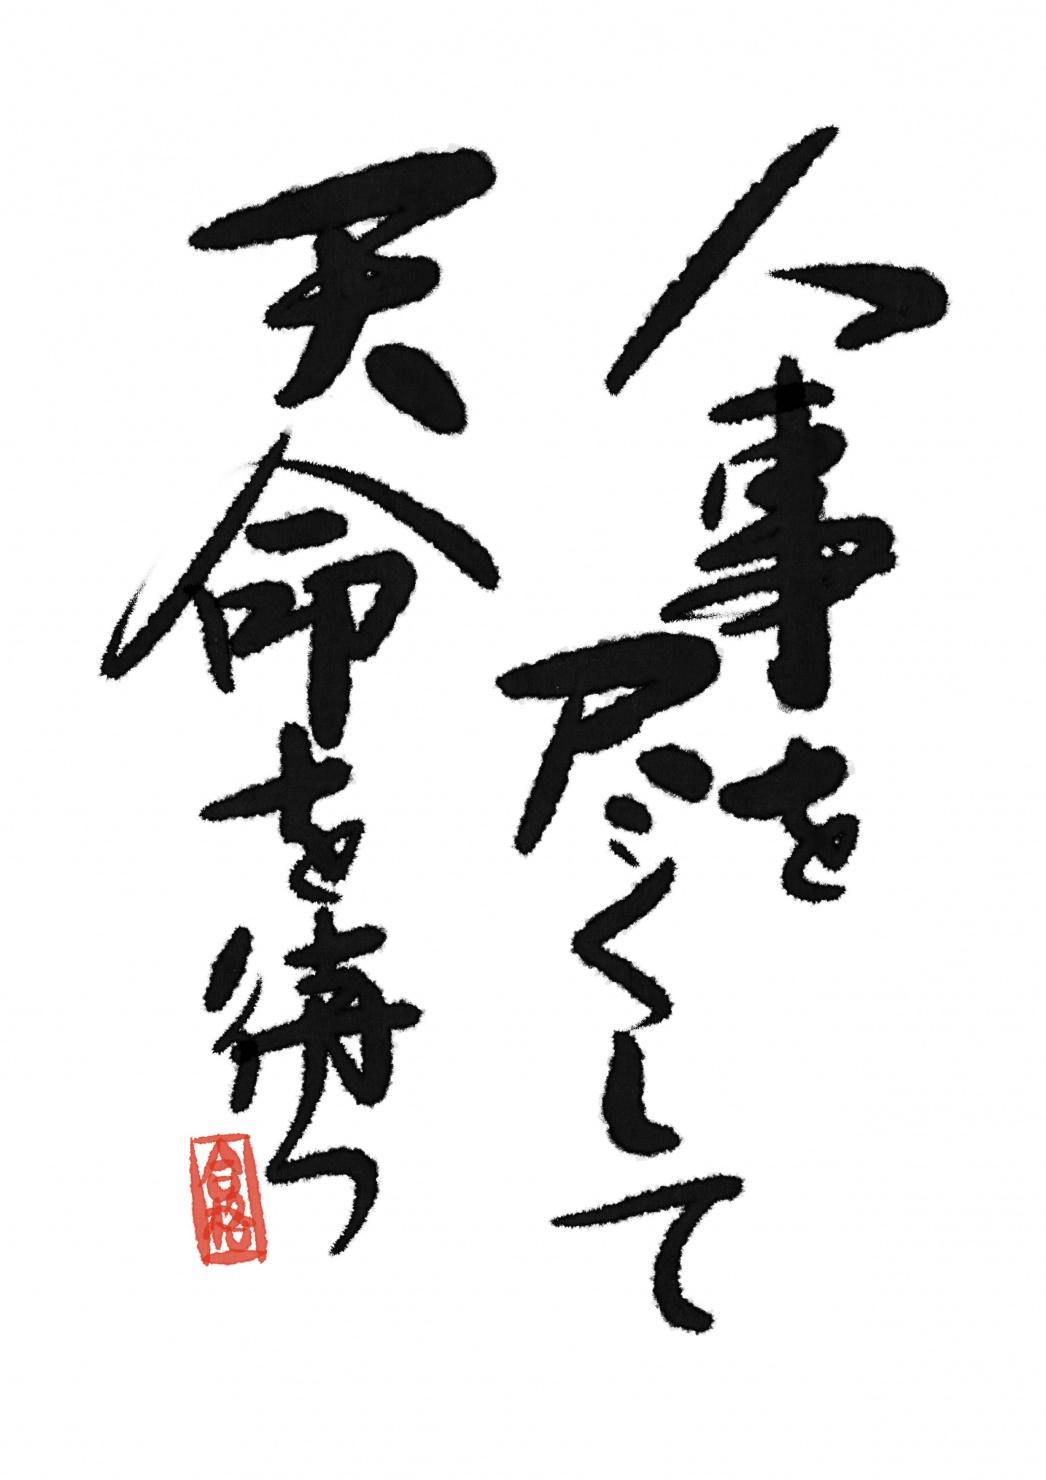 人事を尽くして
天命を待つ
合格